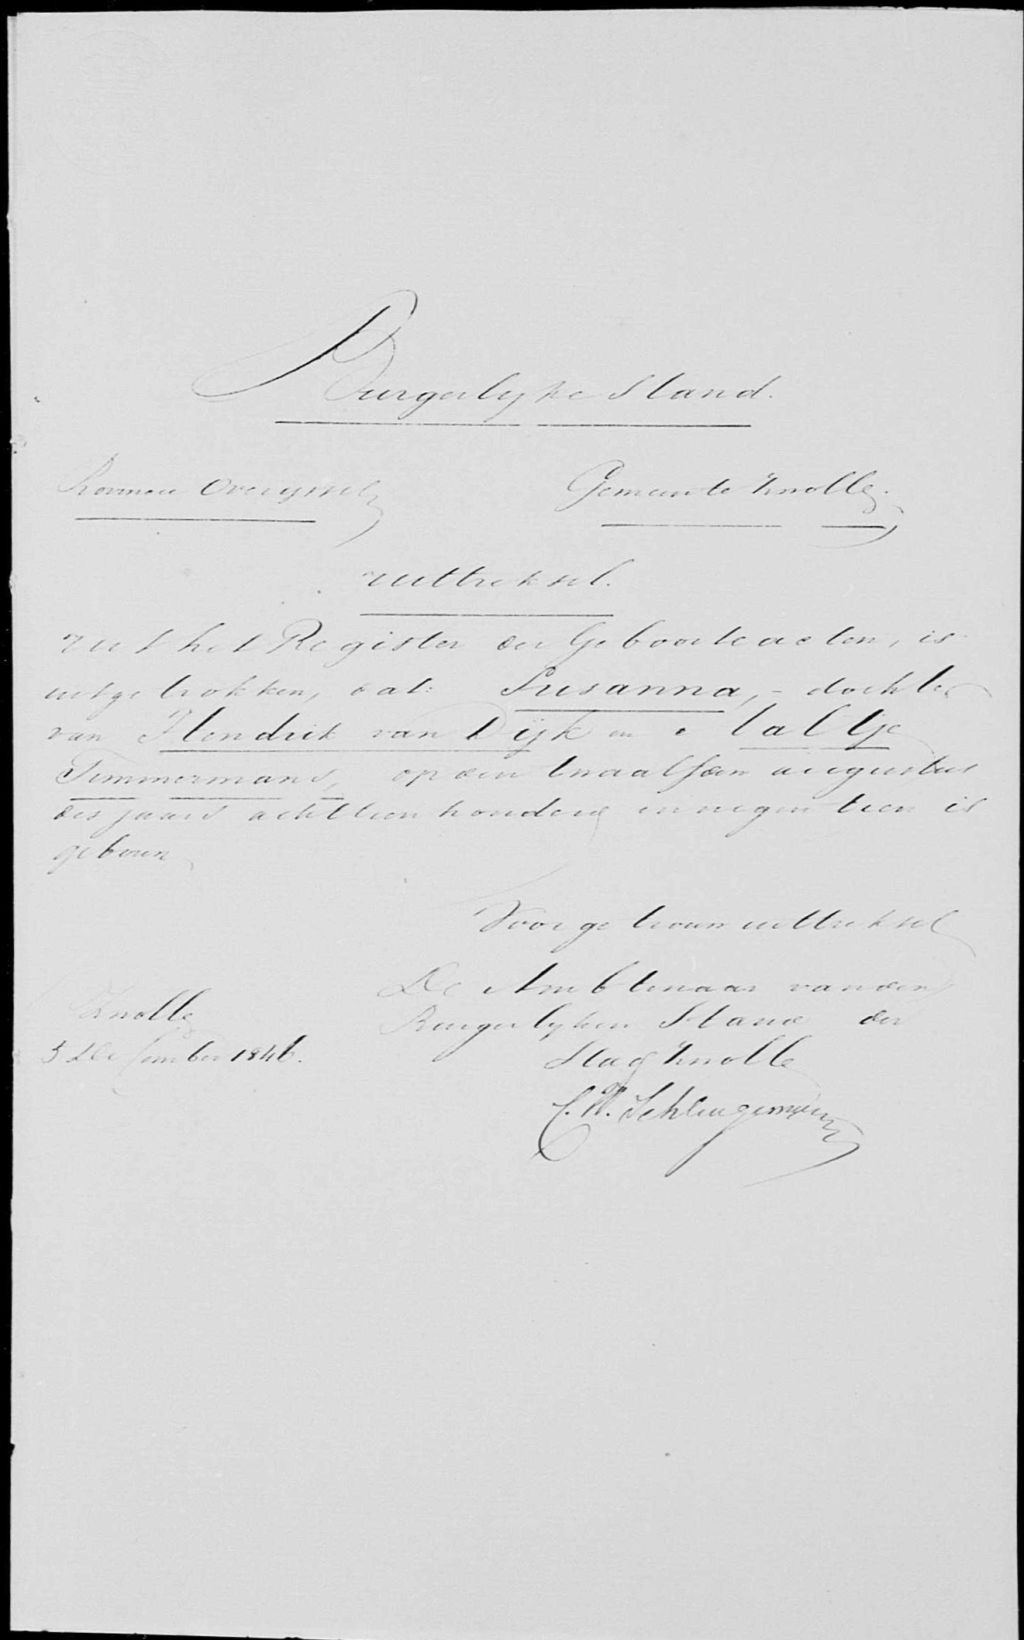 Burgerlyke Stand.
Provincie Overyssel
Gemeente Zwolle.
Uittreksel.
Uit het Register der Geboorteacten, is
uitgetrokken, dat: Susanna, - dochter
van Hendrik van Dijk en Aaltje
Timmermans, op den twaalfden augustus
des jaars achttien honderd en negentien is
geboren
Voor getrouw uittreksel
De Ambtenaar van den
Burgerlyken Stand der
Stad Zwolle
Zwolle
5 December 1846.